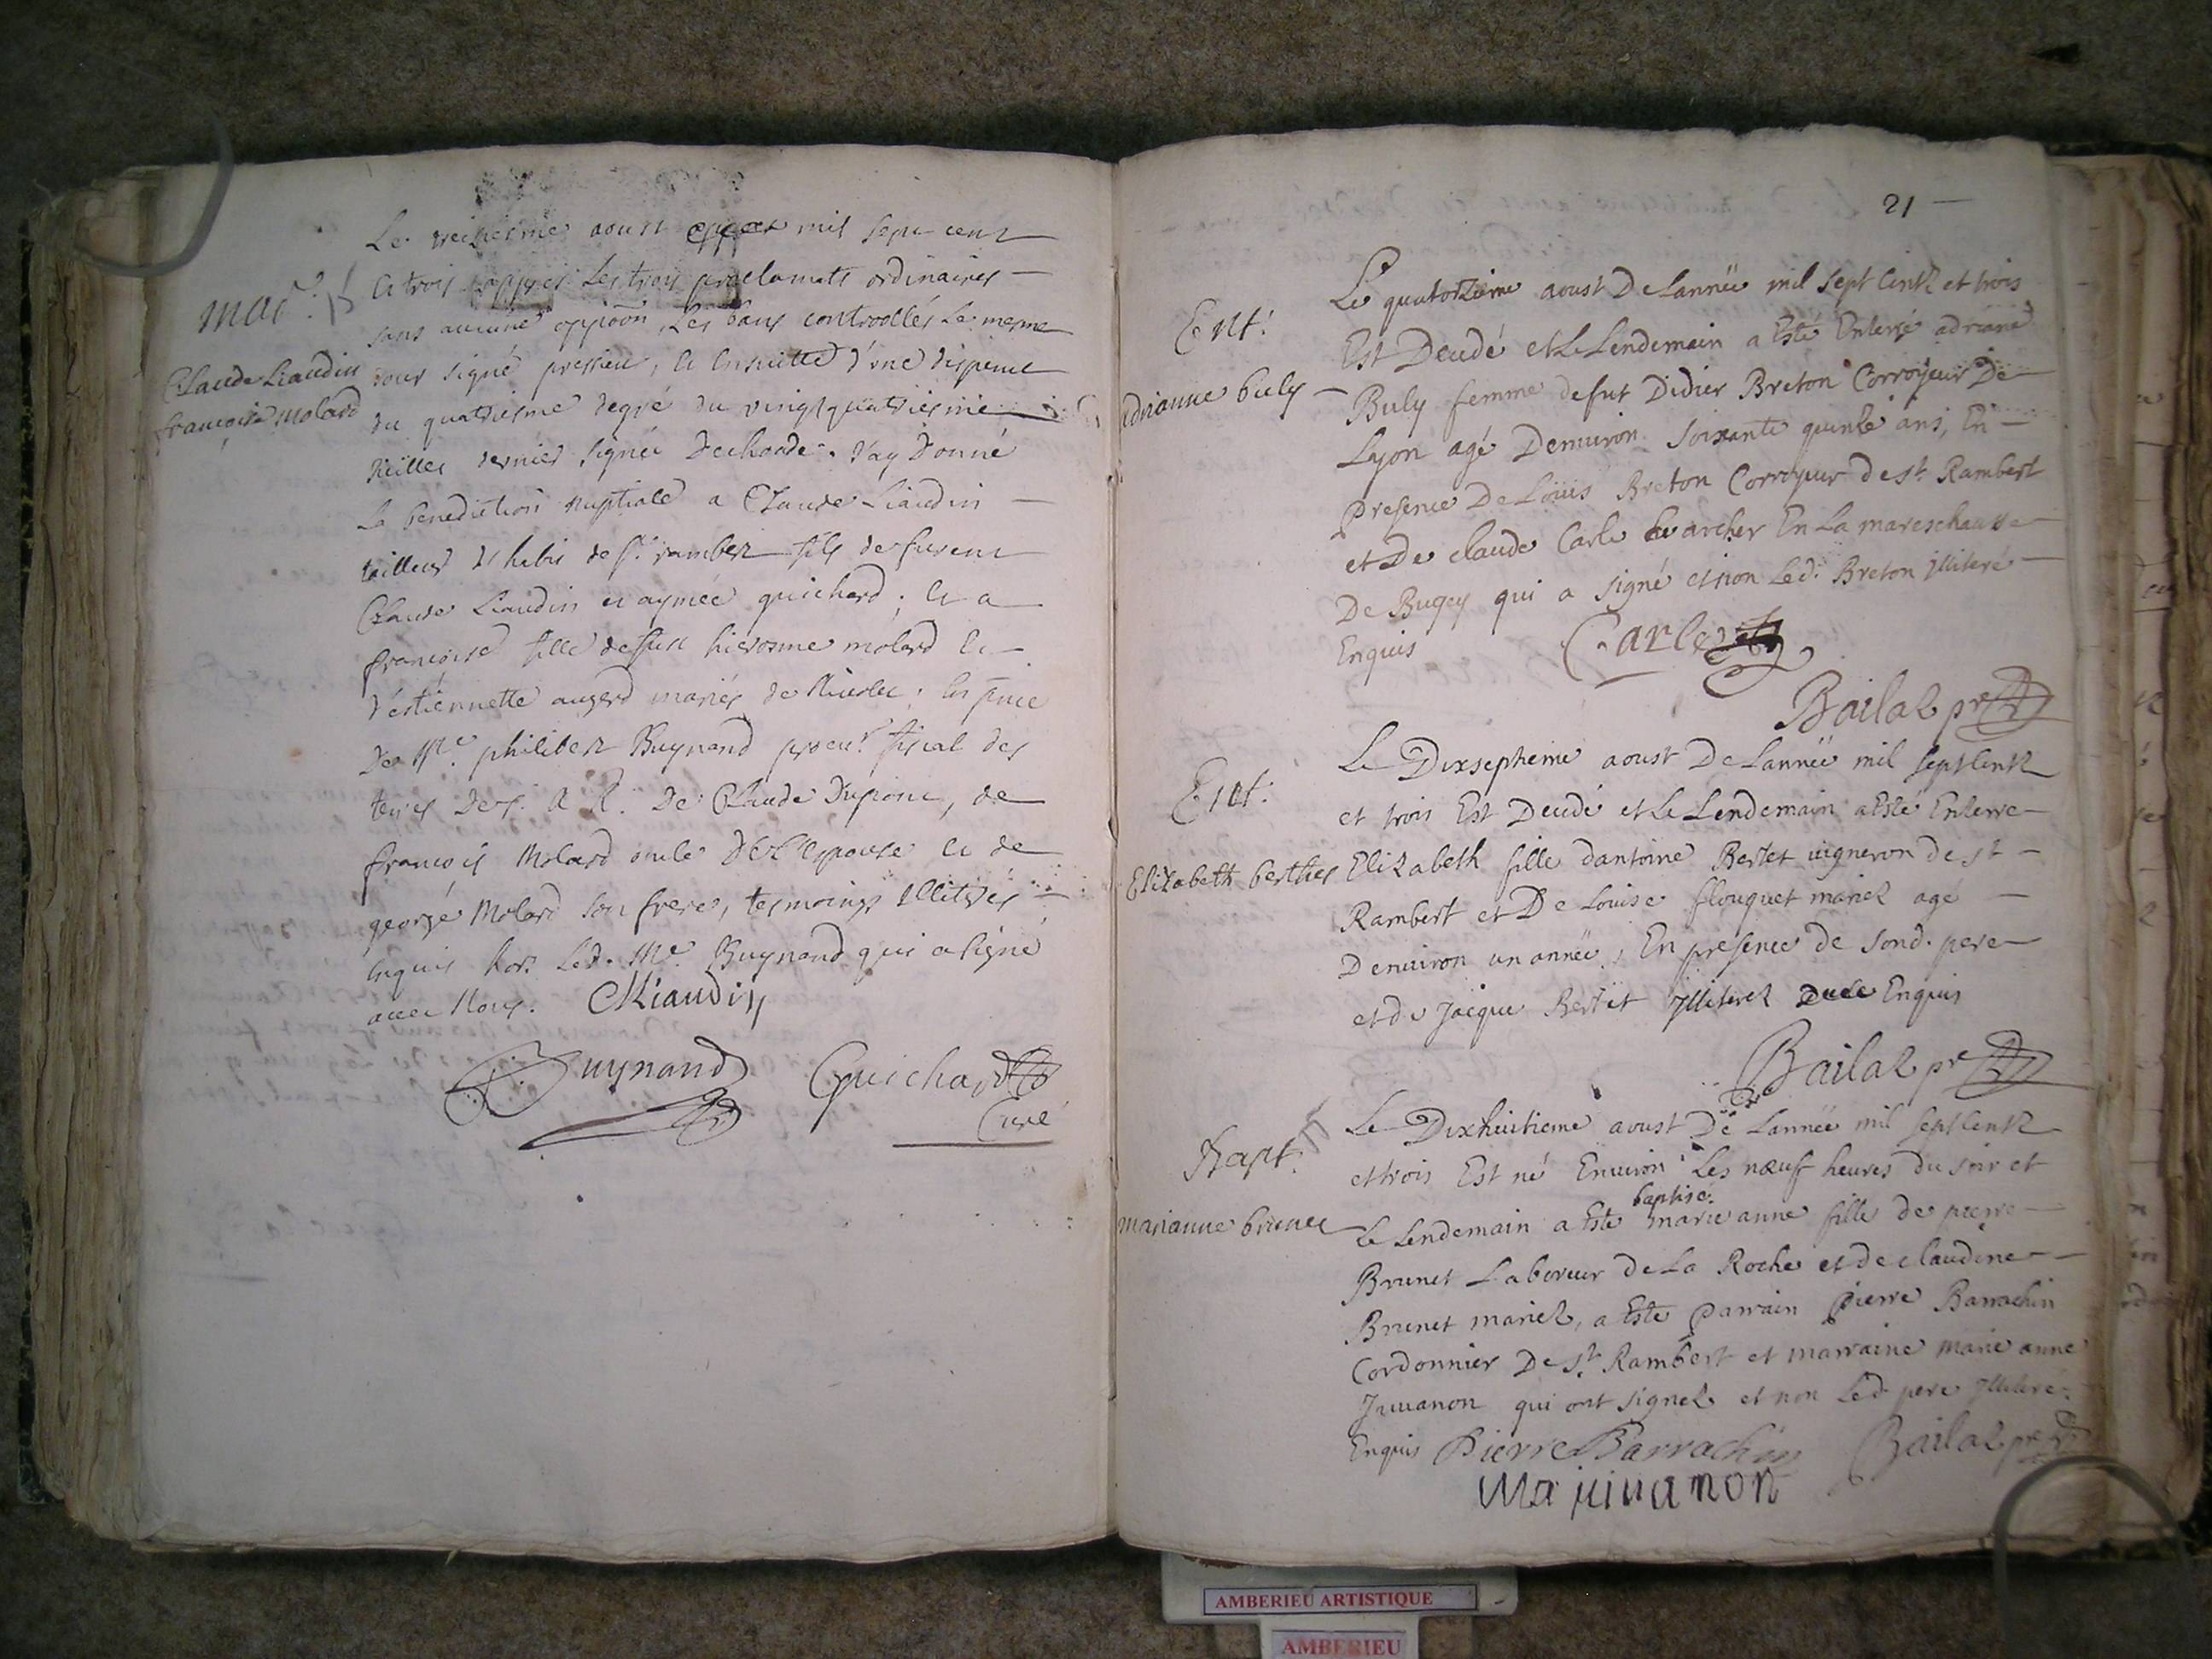 Le treiziesme aoust mil sept cent
et trois appres les trois proclamats ordinaires
mar.
sans aucune oppoõn, les bans controollés le mesme
Claude Liaudin
françoise molard
jour signé pressieu, et ensuitte d'une dispense
du quatriesme degré du vingt quatriesme
Juillet dernier signée Dechoude. J'ay donné
la benediction nuptiale a Claude Liaudin
tailleur d'habis de st. rambert fils de furent
Claude Liaudin et aymée guichard; et a
françoise fille de fust hierosme molard et
d'estiennette augerd mariés de; en pnce
de Me. philibert Buynand procur. fiscal des
terres de s. A R. de Claude Dupont, de
françois Molard oncle de l'espouse et de
george Molard son frere, tesmoings illitrés
enquis hors led. Me. Buynand qui a signé
avec Nous. CLiaudin
Buynand Guichard
Curé
21
Ent.
adrianne buly
Le quatorzieme aoust De Lannëe mil sept centz et trois
Est Decedé et Le Lendemain a Esté Enterré adriane
Buly femme defut Didier Breton Corroyeur De
Lyon agé Denuiron soixante quinze ans, En
presence De Loüis Breton Corroyeur de st. Rambert
et De claude Carle archer En La mareschausse
De Bugey qui a signé et non Led. Breton jlliteré
Enquis Carle
Bailaz pre
Ent.
Elizabeth berthet
Le Dixseptieme aoust De Lannëe mil septcentz
et trois Est Decedé et Le Lendemain a Esté Enterré
Elizabeth fille dantoine Bertet vigneron de st
Rambert et De Louise flouquet mariez agé
Denuiron un annëe, En presence de sond. pere
et de Jacque Bertet jlliterez Enquis
Bailaz pre
Bapt.
marianne brunet
Le Dixhuitieme aoust De Lannëe mil septcentz
et trois Est né Enuiron Les nœuf heures du soir et
baptisé
Le Lendemain a Esté marie anne fille de pierre
Brunet Laboreur de La Roche et de claudine
Brunet mariez, a Esté parrain pierre Barrachin
Cordonnier De st. Rambert et marraine marie anne
Juuanon qui ont signez et non Led pere jlliteré
Enquis Pierre Barrachin Bailaz pre
Ma juuanon
AMBERIEU ARTISTIQUE
AMBERIEU